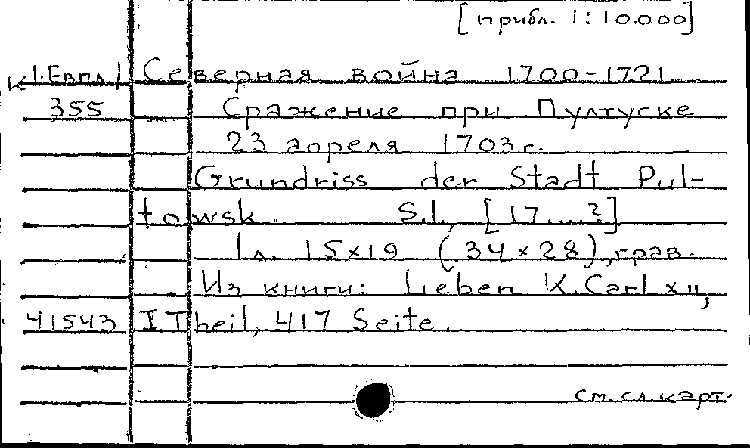 [прибл. 1:10.000]
К 1.Евпл/ Северная война 1700-1721
355 Сражение при Пултуске
23 апреля 1703 г.
Grundriss der Stadt Pul-
towsk S.l., [17...?]
1 л. 15x19 (34x28), грав.
Из книги: Lieben K. Carl XII,
41543 I Theil, 417 Seite.
см. сл. карт.